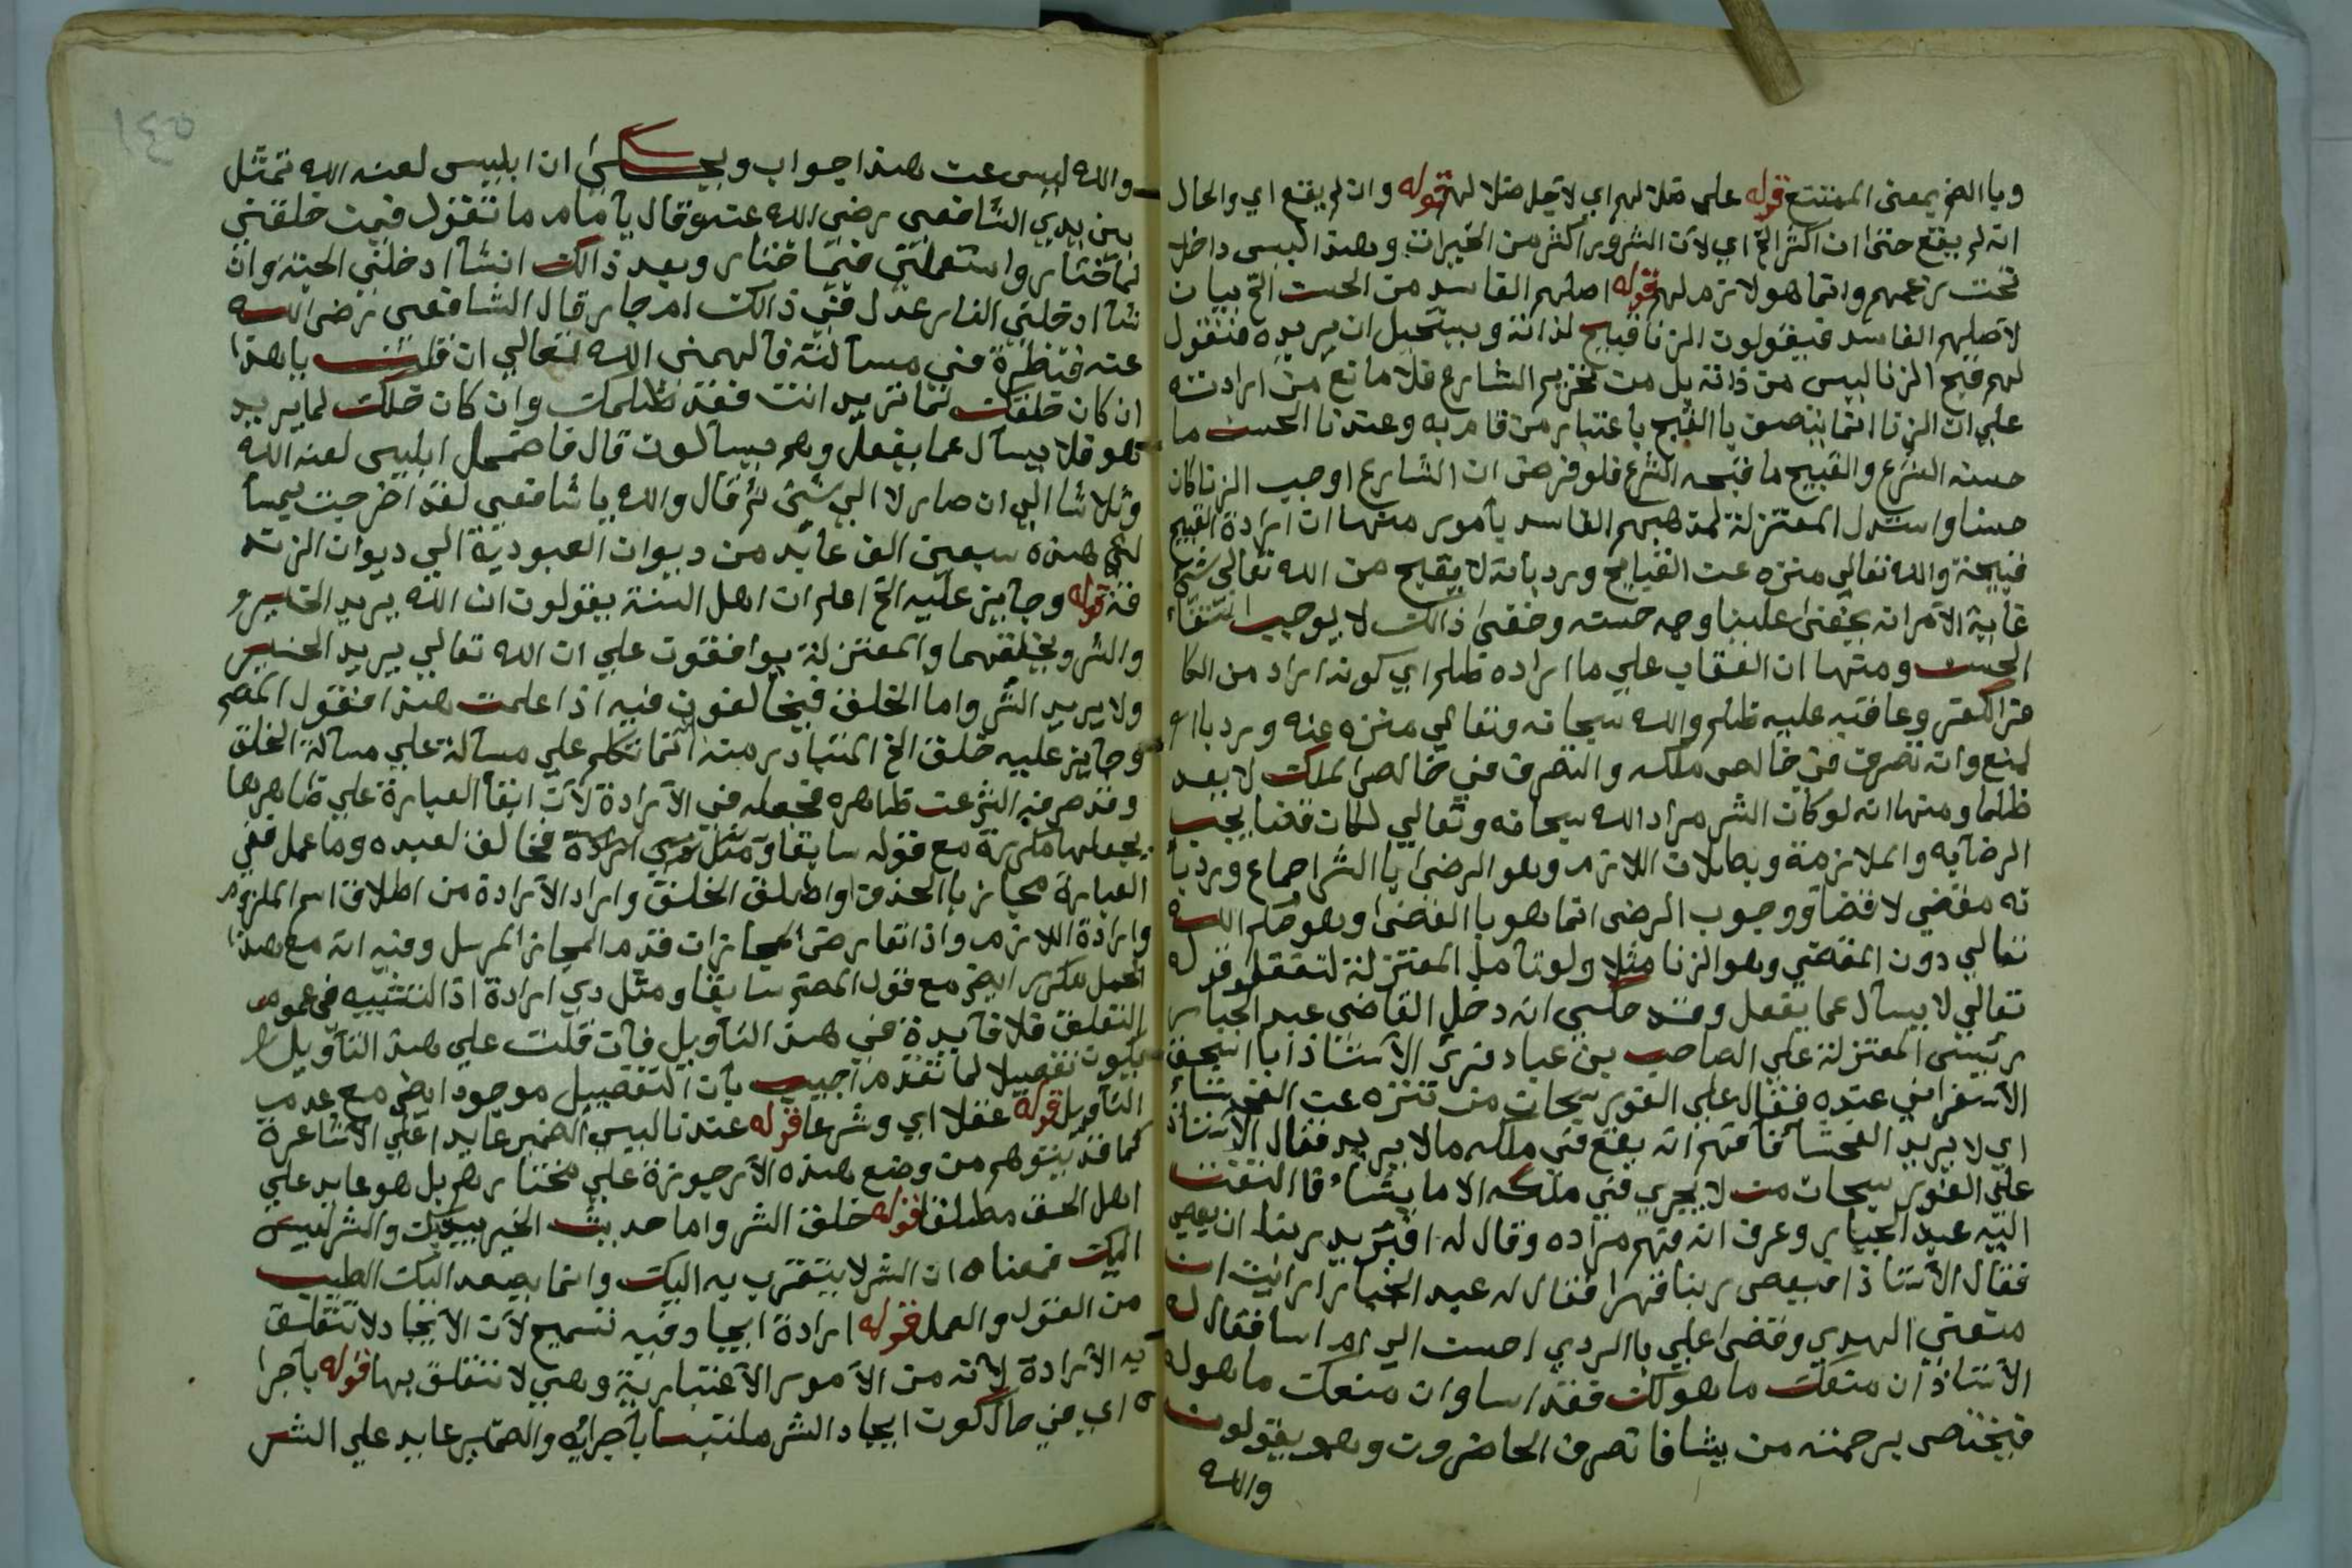 وبا الضم بمعنى الممتنع قوله علي مثلا لهم اي لاجل مثلا لهم قوله وان لم يقنع اي والحال
انه لم يقنع حتى ان اكثر الخ اي لان الشرور اكثر من الخيرات وهذا ليس داخل
تحت زعمهم وانما هو لازم لهم قوله اصلهم الفاسد من الحسن الخ بيان
لاصلهم الفاسد فيقولون الزنا قبيح لذاته ويستحيل ان يريده فنقول
لهم قبح الزنا ليس من ذاته بل من تحريم الشارع فلا مانع من ارادته
علي ان الزنا انما يتصف با القبح باعتبار من قام به وعندنا الحسن ما
حسنه الشرع والقبيح ما قبحه الشرع فلو فرض ان الشارع اوجب الزنا كان
حسنا واستدل المعتزلة لمذهبهم الفاسد بأمور منها ان ارادة القبيح
قبيحة والله تعالي منزه عن القبايح ورد بأنه لا يقبح من الله تعالي شئ
غاية الامر انه يخفى علينا وجه حسنه وخفى ذالك لا يوجب انتفاء
الحسن ومنها ان العقاب علي ما اراده ظلم اي كونه اراد من الكا
فر الكفر وعاقبه عليه ظلم والله سبحانه وتعالي منزه عنه ورد باا
لمنع وانه تصرف في خالص ملكه والتصرف في خالص الملك لا يعد
ظلما ومنها انه لوكان الشر مراد الله سبحانه وتعالي لكان قضا يجب
الرضا به والملازمة وبطلان اللازم وهو الرضى با الشر اجماع ورد با
نه مقضي لا قضا ووجوب الرضى انما هو با القضى وهو حكم الله
تعالي دون المقضي وهو الزنا مثلا ولو تأمل المعتزلة لتعقلو قوله
تعالي لا يسأل عما يفعل وقد حكي انه دخل القاضي عبد الجبار
رئيس المعتزلة علي الصاحب بن عباد فرئ الاستاذ ابا اسحق
الاسفرايني عنده فقال علي الفور سبحان من تنزه عن الفحشاء
اي لا يريد الفحشأ فأفهم انه يقع في ملكه مالا يريد فقال الاستاذ
علي الفور سبحان من لا يجري في ملكه الا ما يشاء فا التفت
اليه عبد الجبار وعرف انه فهم مراده وقال له افيريد ربنا ان يعصى
فقال الاستاذ افيعصى ربنا قهرا فقال له عبد الجبار ارايت ان
منعني الهدي وقضى علي با الردي احسن الي ام اسا فقال له
الاستاذ ان منعك ما هو لك فقد اسا وان منعك ما هو له
فيختص برحمته من يشا فا نصرف الحاضرون وهم يقولون
والله
١٤٥
والله ليس عن هذا جواب ويحكى ان ابليس لعنه الله تمثل
بين يدي الشافعي رضى الله عنه وقال يا مام ما تقول فيمن خلقني
لما ختار واستعملني فيما ختار وبعد ذالك انشأ ادخلني الجنة وان
شأ ادخلني النار عدل في ذالك ام جار قال الشافعي رضى الله
عنه فنظرة في مسألته فألهمني الله تعالي ان قلت يا هذا
ان كان خلقك لما تريد انت فقد ظلمك وان كان خلقك لما يريد
هو فلا يسأل عما يفعل وهم يسألون قال فاضمحل ابليس لعنه الله
وتلاشا الي ان صار لا الي شئ ثم قال والله يا شافعي لقد اخرجت بمسأ
لتي هذه سبعين الف عابد من ديوان العبودية الي ديوان الزند
قة قوله وجايز عليه الخ اعلم ان اهل السنة يقولون ان الله يريد الخير
والشر ويخلقهما والمعتزلة يوافقون علي ان الله تعالي يريد الخير
ولا يريد الشر واما الخلق فيخالفون فيه اذا علمت هذا فنقول المصر
وجايز عليه خلق الخ المتبادر منه انما تكلم علي مسألة علي مسألة الخلق
وقد صرفه الشر عن ظاهره فجعله في الارادة لان ابقأ العبارة علي ظاهرها
يجعلها مكررة مع قوله سابقا فخالق لعبده وما عمل ففي
العبارة مجاز با الحذف او اطلق الخلق واراد الارادة من اطلاق اسم الملزوم
وارادة اللازم واذا تعارض المجازات قدم المجاز المرسل وفيه انه مع هذا
الحمل مكرر ايض مع قول المصر سابقا ومثل دي ارادة اذ التشبيه في عموم
التعلق فلا فايدة في هذا التأويل فأن قلت علي هذا التأويل
يكون تفصيلا لما تقدم اجيب بأن التفصيل موجود ايض مع عدم
التأويل قوله عقلا اي وشرعا قوله عندنا ليس الضمير عايدا علي الاشاعرة
كما قد يتوهم من وضع هذه الارجوزة علي مختارهم بل هو عايد علي
اهل الحق مطلقا قوله خلق الشر واما حديث الخير بيديك والشر ليس
اليك فمعناه ان الشر لا يتقرب به اليك وانما يصعد اليك الطيب
من القول والعمل قوله ارادة ايجاد فيه تسميح لان الايجاد لا تتعلق
به الارادة لانه من الامور الاعتبارية وهي لا تتعلق بها قوله بأجرا
ه اي في حال كون ايجاد الشر ملتبسا بأجرائه والضمير عايد علي الشر